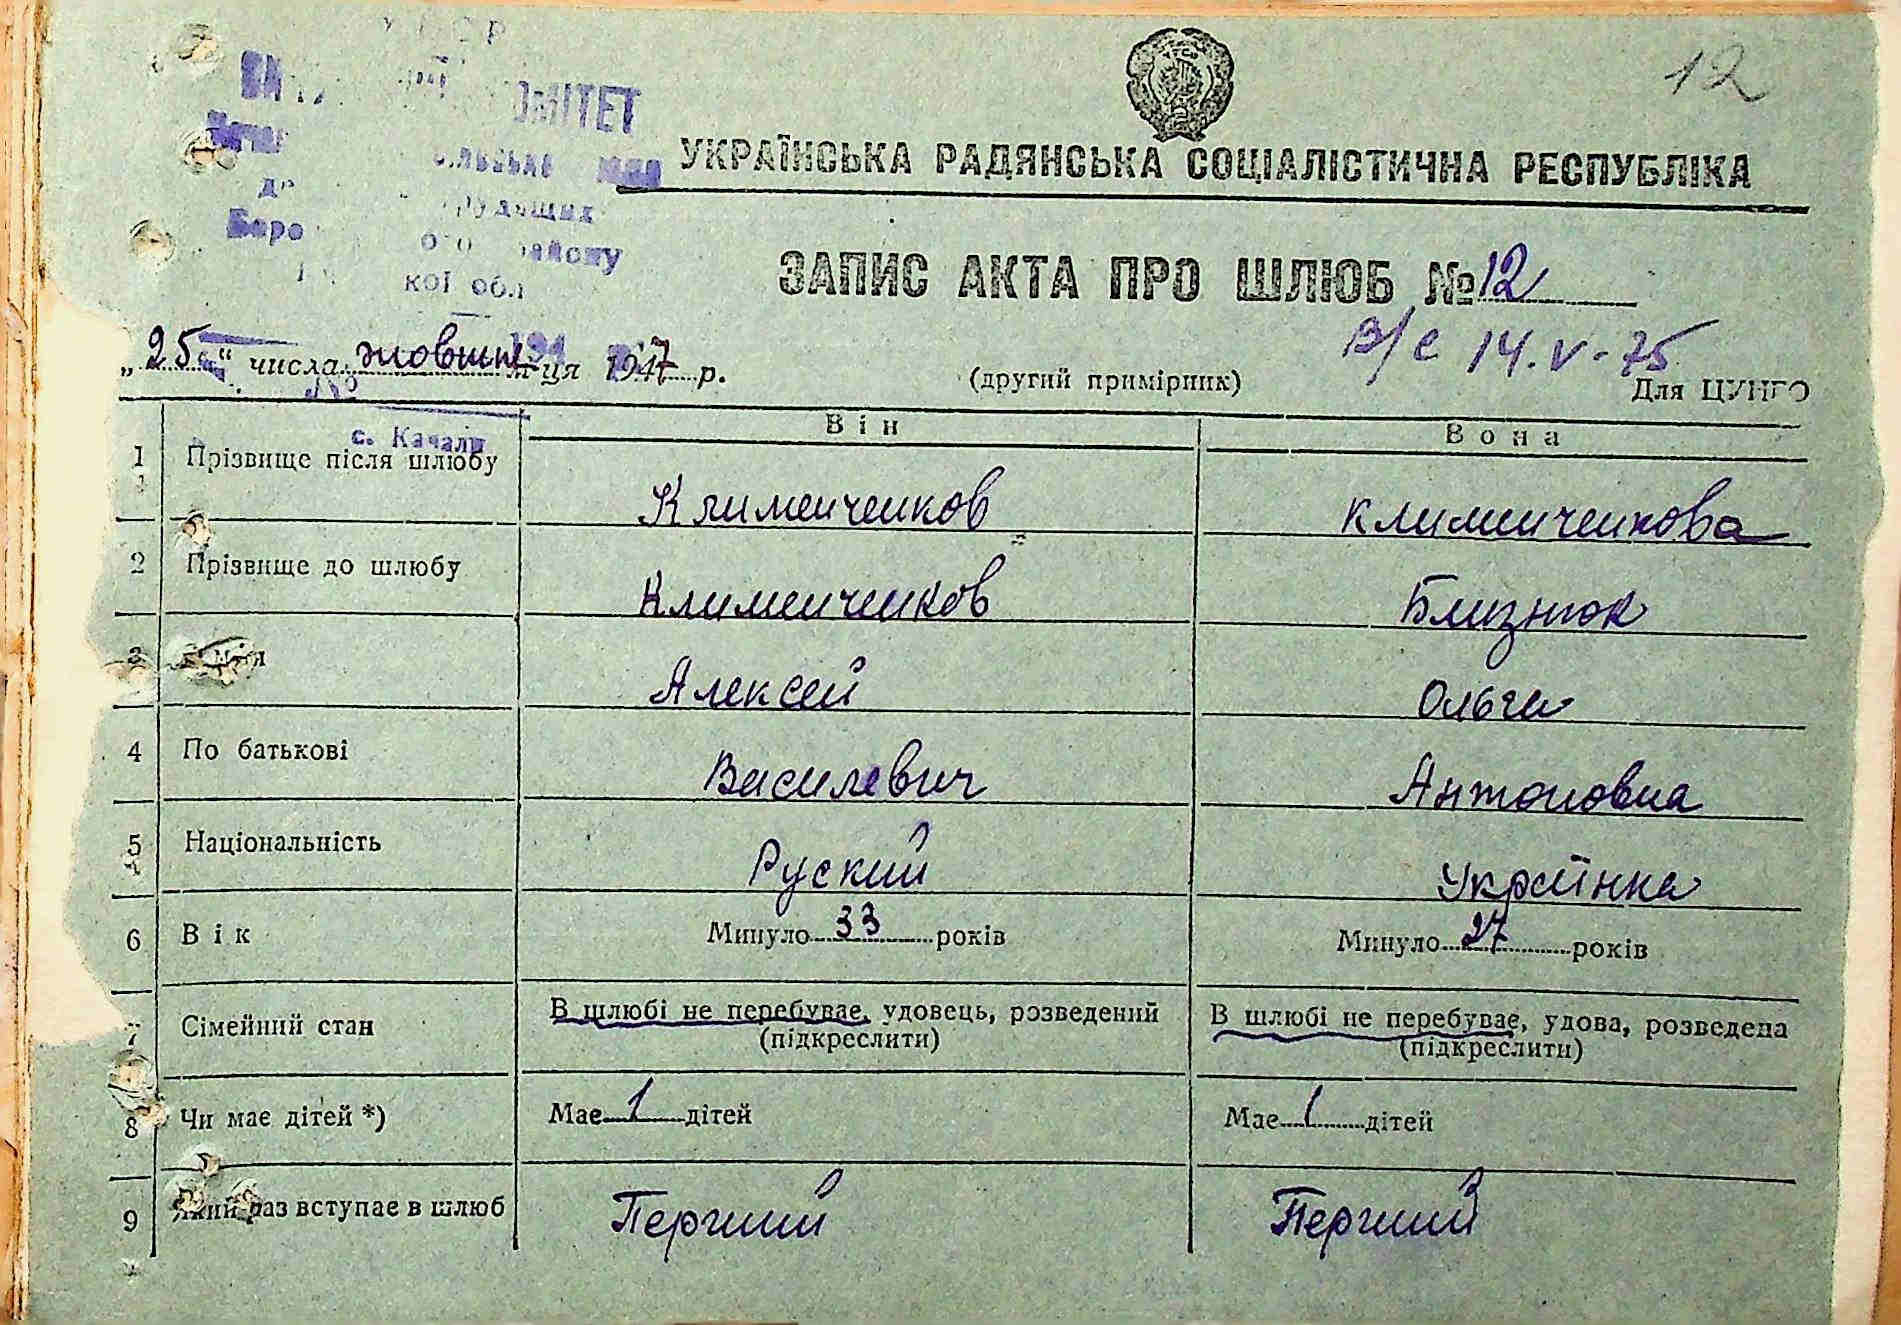 12
УКРАЇНСЬКА РАДЯНСЬКА СОЦІАЛІСТИЧНА РЕСПУБЛІКА
ЗАПИС АКТА ПРО ШЛЮБ №12
кої обл
В/с 14.V-75
„25“ числа жовтня м-ця 1947 р.
(другий примірник)
Для ЦУНГО
с. Качали
Він
Вона
1 Прізвище після шлюбу Клименченков Клименченкова
2 Прізвище до шлюбу Клименченков Близнюк
3 Алексей Ольга
4 По батькові Василевич Антоновна
5 Національність Руский Українка
6 Вік Минуло 33 років Минуло 27 років
7 Сімейний стан В шлюбі не перебуває, удовець, розведений (підкреслити) В шлюбі не перебуває, удова, розведена (підкреслити)
8 Чи має дітей *) Має 1 дітей Має 1 дітей
9 Який раз вступає в шлюб Перший Перший